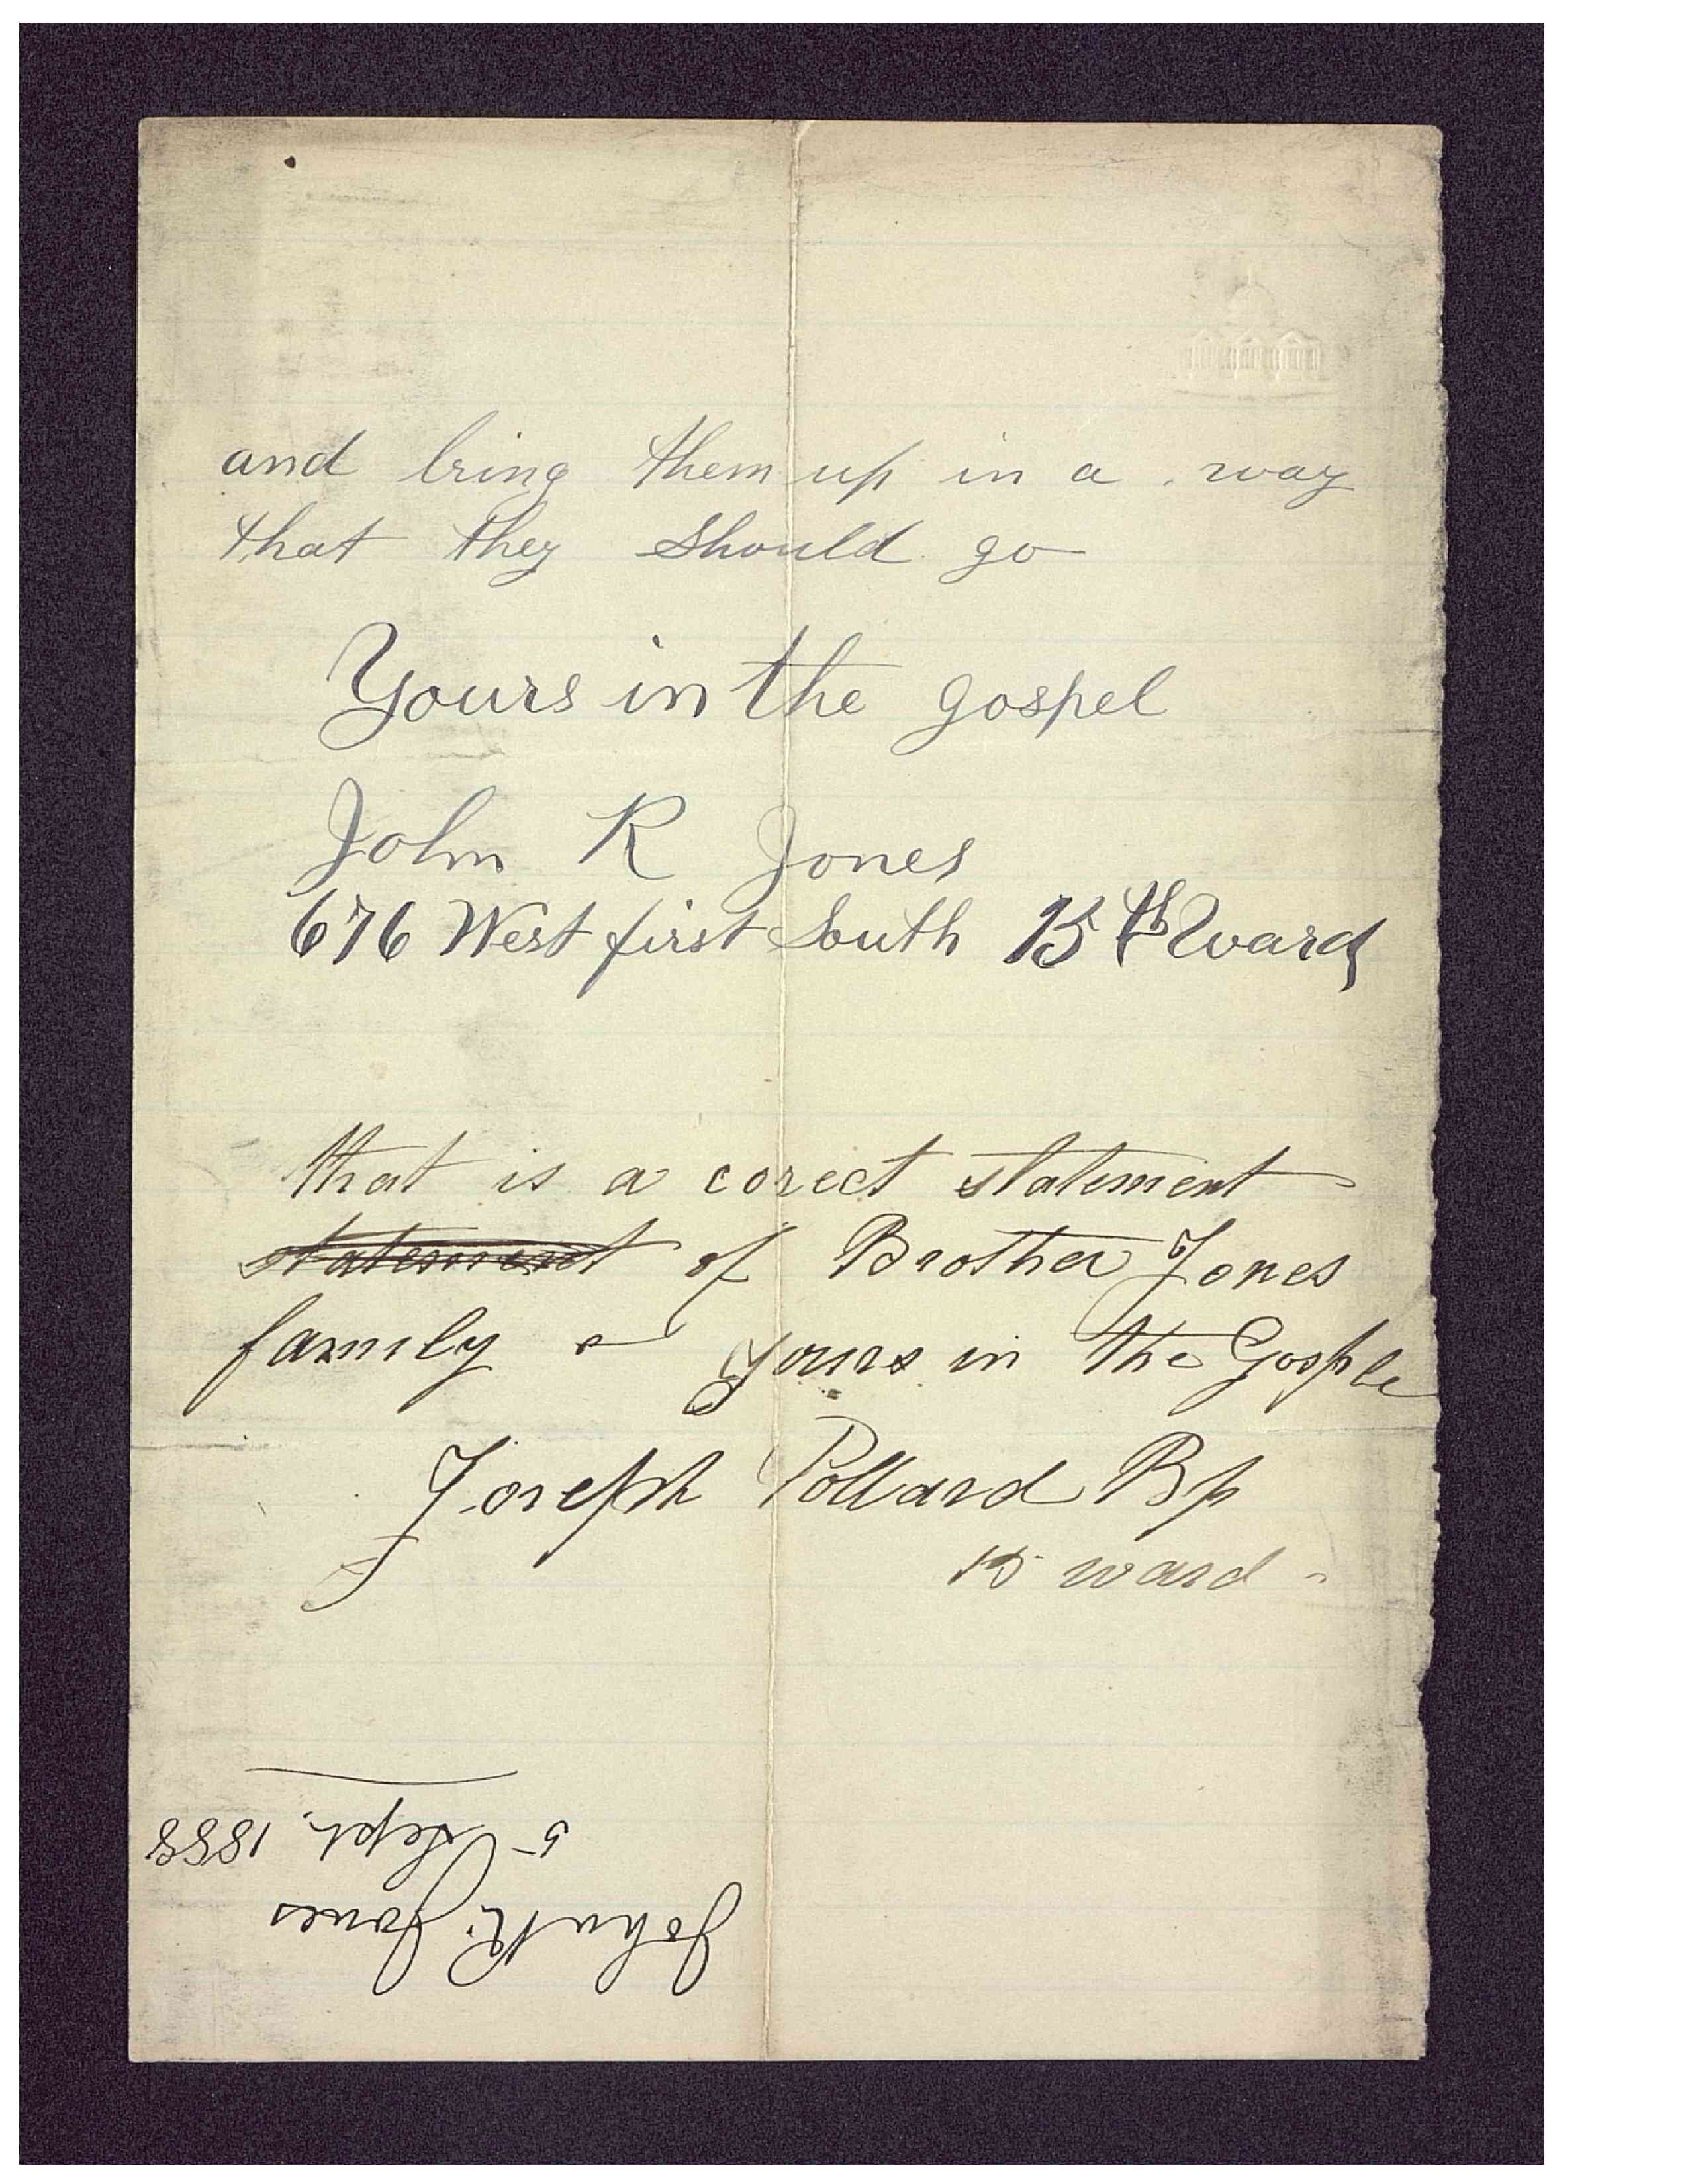 and bring them up in a way
that they should go
Yours in the gospel
John R Jones
676 West first South 15th Ward
that is a corect statement
statement of Brother Jones
family yours in the Gosple
Joseph Pollard Bp
15 ward -
John R. Jones
5 Sept. 1888